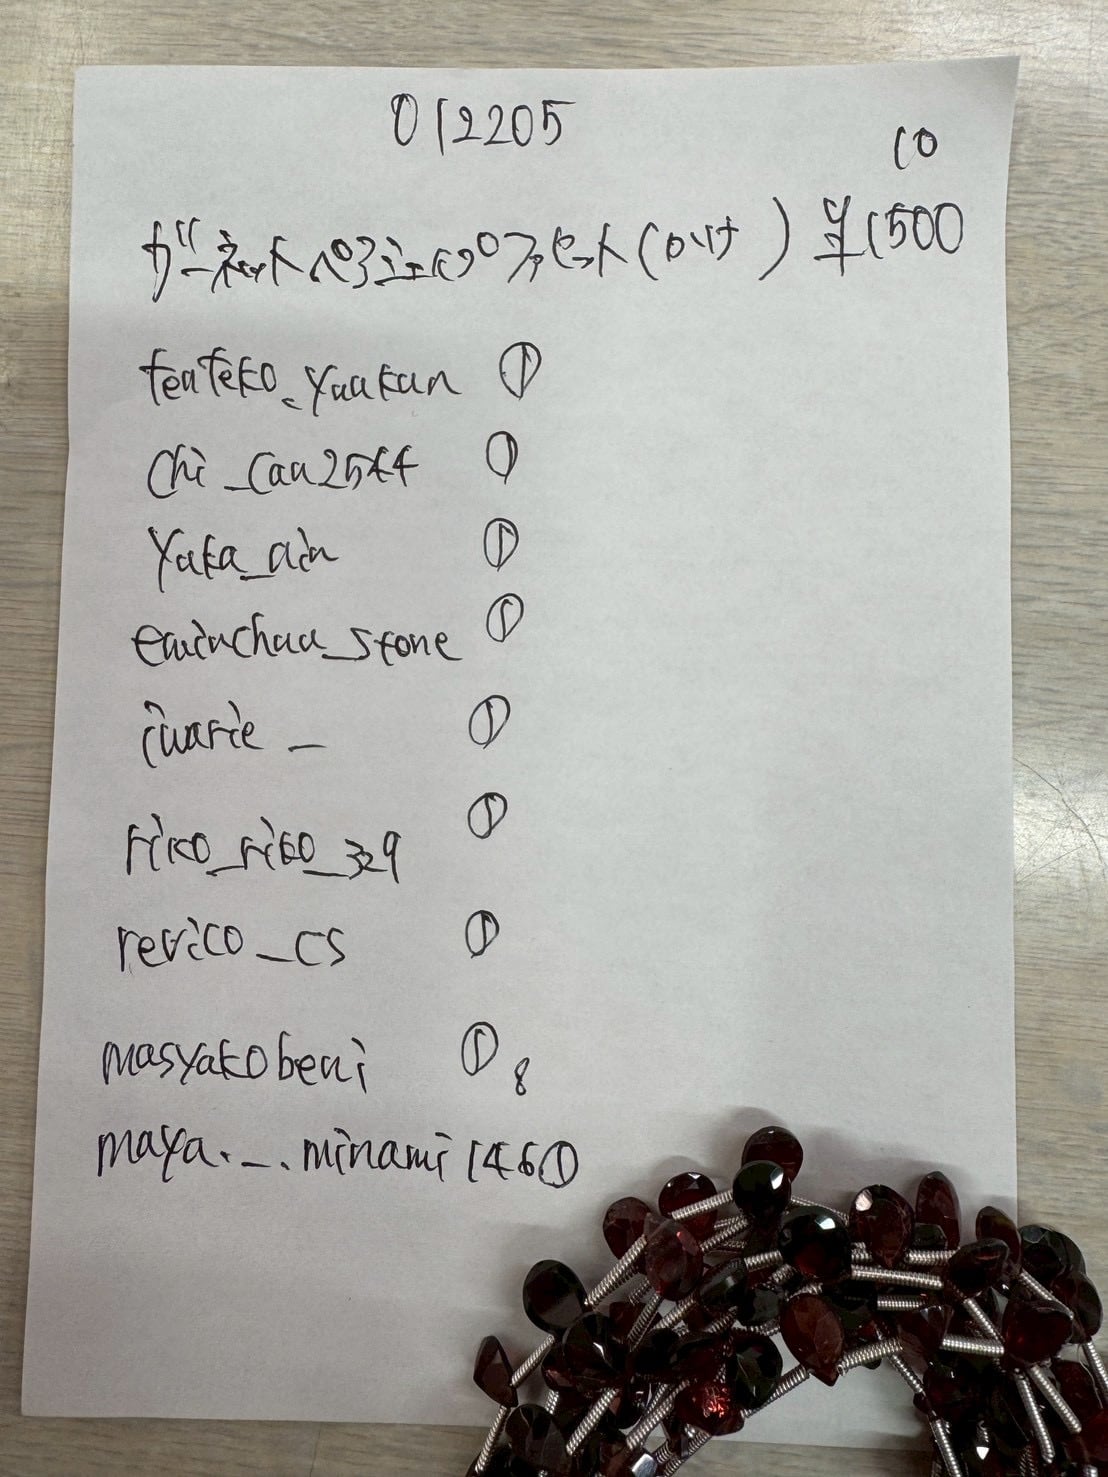 012205
10
ガーネットペアシェイプファセット(ロット) ¥1500
teateko_yaakan ①
chi_caa2544 ①
yaka_ain ①
emiuchaa_stone ①
iwarie_ ①
riko_riko_329 ①
revico_cs ①
masyakobeni ① 8
maya._.minami146①